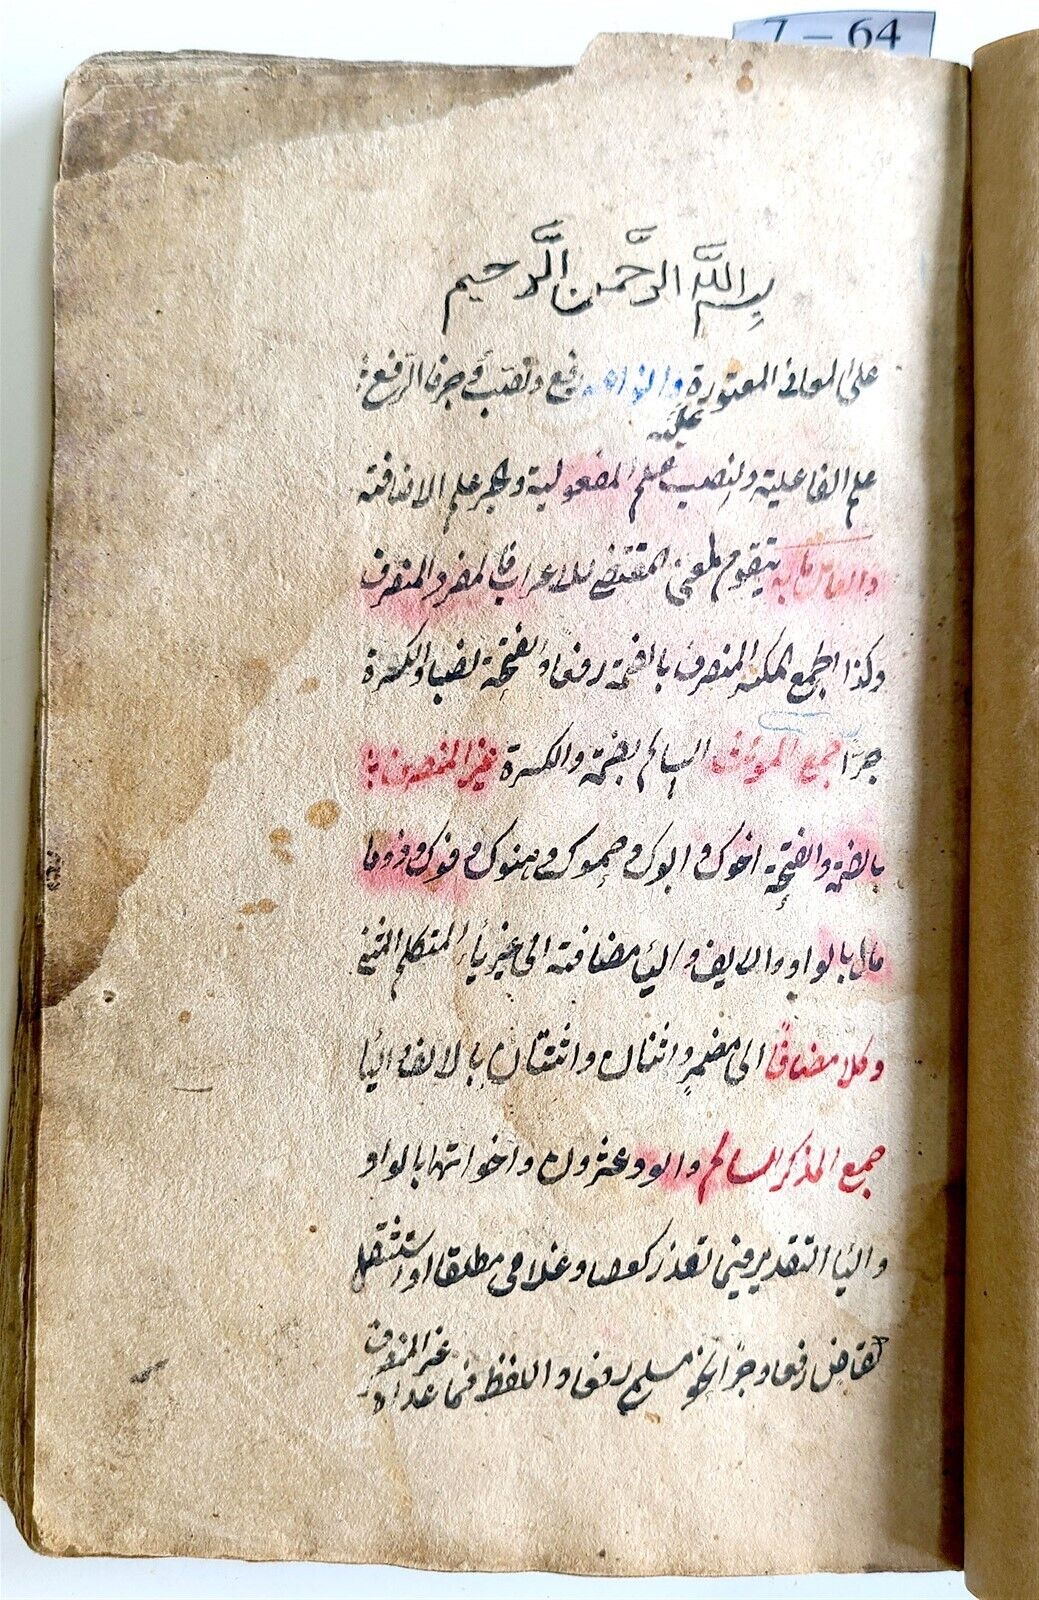 7 – 64
بسم الله الرحمن الرحيم
على المعانى المعتورة وانواعه رفع ونصب و جر فالرفع
علم الفاعلية والنصب علم المفعولية والجر علم الاضافة
والعامل ما به يتقوم المعنى المقتضى للاعراب فالمفرد المنصرف
وكذا الجمع المكسر المنصرف بالضمة رفعا والفتحة نصبا والكسرة
جرًا جمع المؤنث السالم بضمة والكسرة غير المنصرف
بالضمة والفتحة اخوك و ابوك و حموك و هنوك و فوك و ذوما
مال بالواو والالف و اليا مضافة الى غير ياء المتكلم المثنى
وكلا مضافًا الى مضمرٍ واثنان واثنتان بالالف و اليا
جمع المذكر السالم والوو عشرون واخواتها بالواو
واليا التقدير فيما تعذر كعصا وغلامى مطلقا او استثقل
كقاض رفعا وجرًا نحو مسلمى رفعا واللفظ فما عداه
غير المنصرف